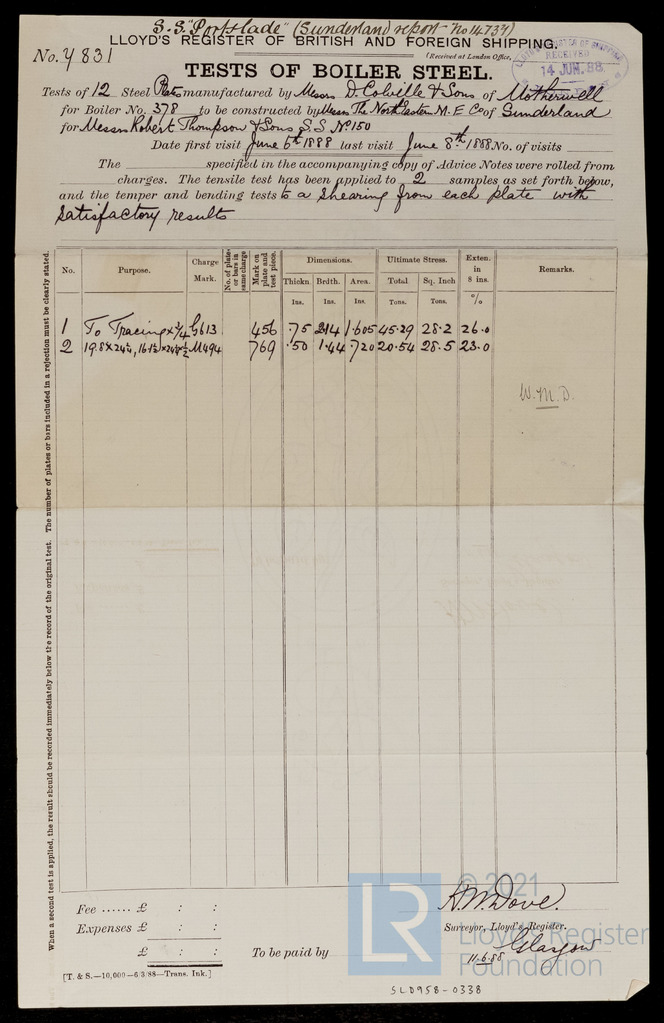 S.S. "Portslade" (Sunderland report No 14737)
LLOYD'S REGISTER OF BRITISH AND FOREIGN SHIPPING.
No. 4831
(Received at London Office,
LLOYD'S REGISTER OF SHIPPING
RECEIVED
14 JUN. 88
TESTS OF BOILER STEEL.
Tests of 12 Steel Plates manufactured by Messrs D. Colville & Sons of Motherwell
for Boiler No. 378 to be constructed by Messrs The North Eastern M. E Co of Sunderland
for Messrs Robert Thompson & Sons S.S No 150
Date first visit June 6th 1888 last visit June 8th 1888 No. of visits
The specified in the accompanying copy of Advice Notes were rolled from
charges. The tensile test has been applied to 2 samples as set forth below,
and the temper and bending tests to a shearing from each plate with
satisfactory results
No. Purpose. Charge Mark. No. of plates or bars in same charge Mark on plate and test piece. Dimensions. Ultimate Stress. Exten. in 8 ins. Remarks.
Thickn. Brdth. Area. Total Sq. Inch
Ins. Ins. Ins. Tons. Tons. %
1 To Tracing x 3/4 G613 456 .75 2.14 1.605 45.29 28.2 26.0
2 M494 769 .50 1.44 .720 20.54 28.5 23.0
W.M.D.
When a second test is applied, the result should be recorded immediately below the record of the original test. The number of plates or bars included in a rejection must be clearly stated.
Fee ...... £ : :
Expenses £ : :
£ : :
To be paid by
H. M. Dove.
Surveyor, Lloyd's Register.
Glasgow
11.6.88
[T. & S.—10,000—6/3/88—Trans. Ink.]
SLD958-0338
LR
© 2021
Lloyd's Register
Foundation